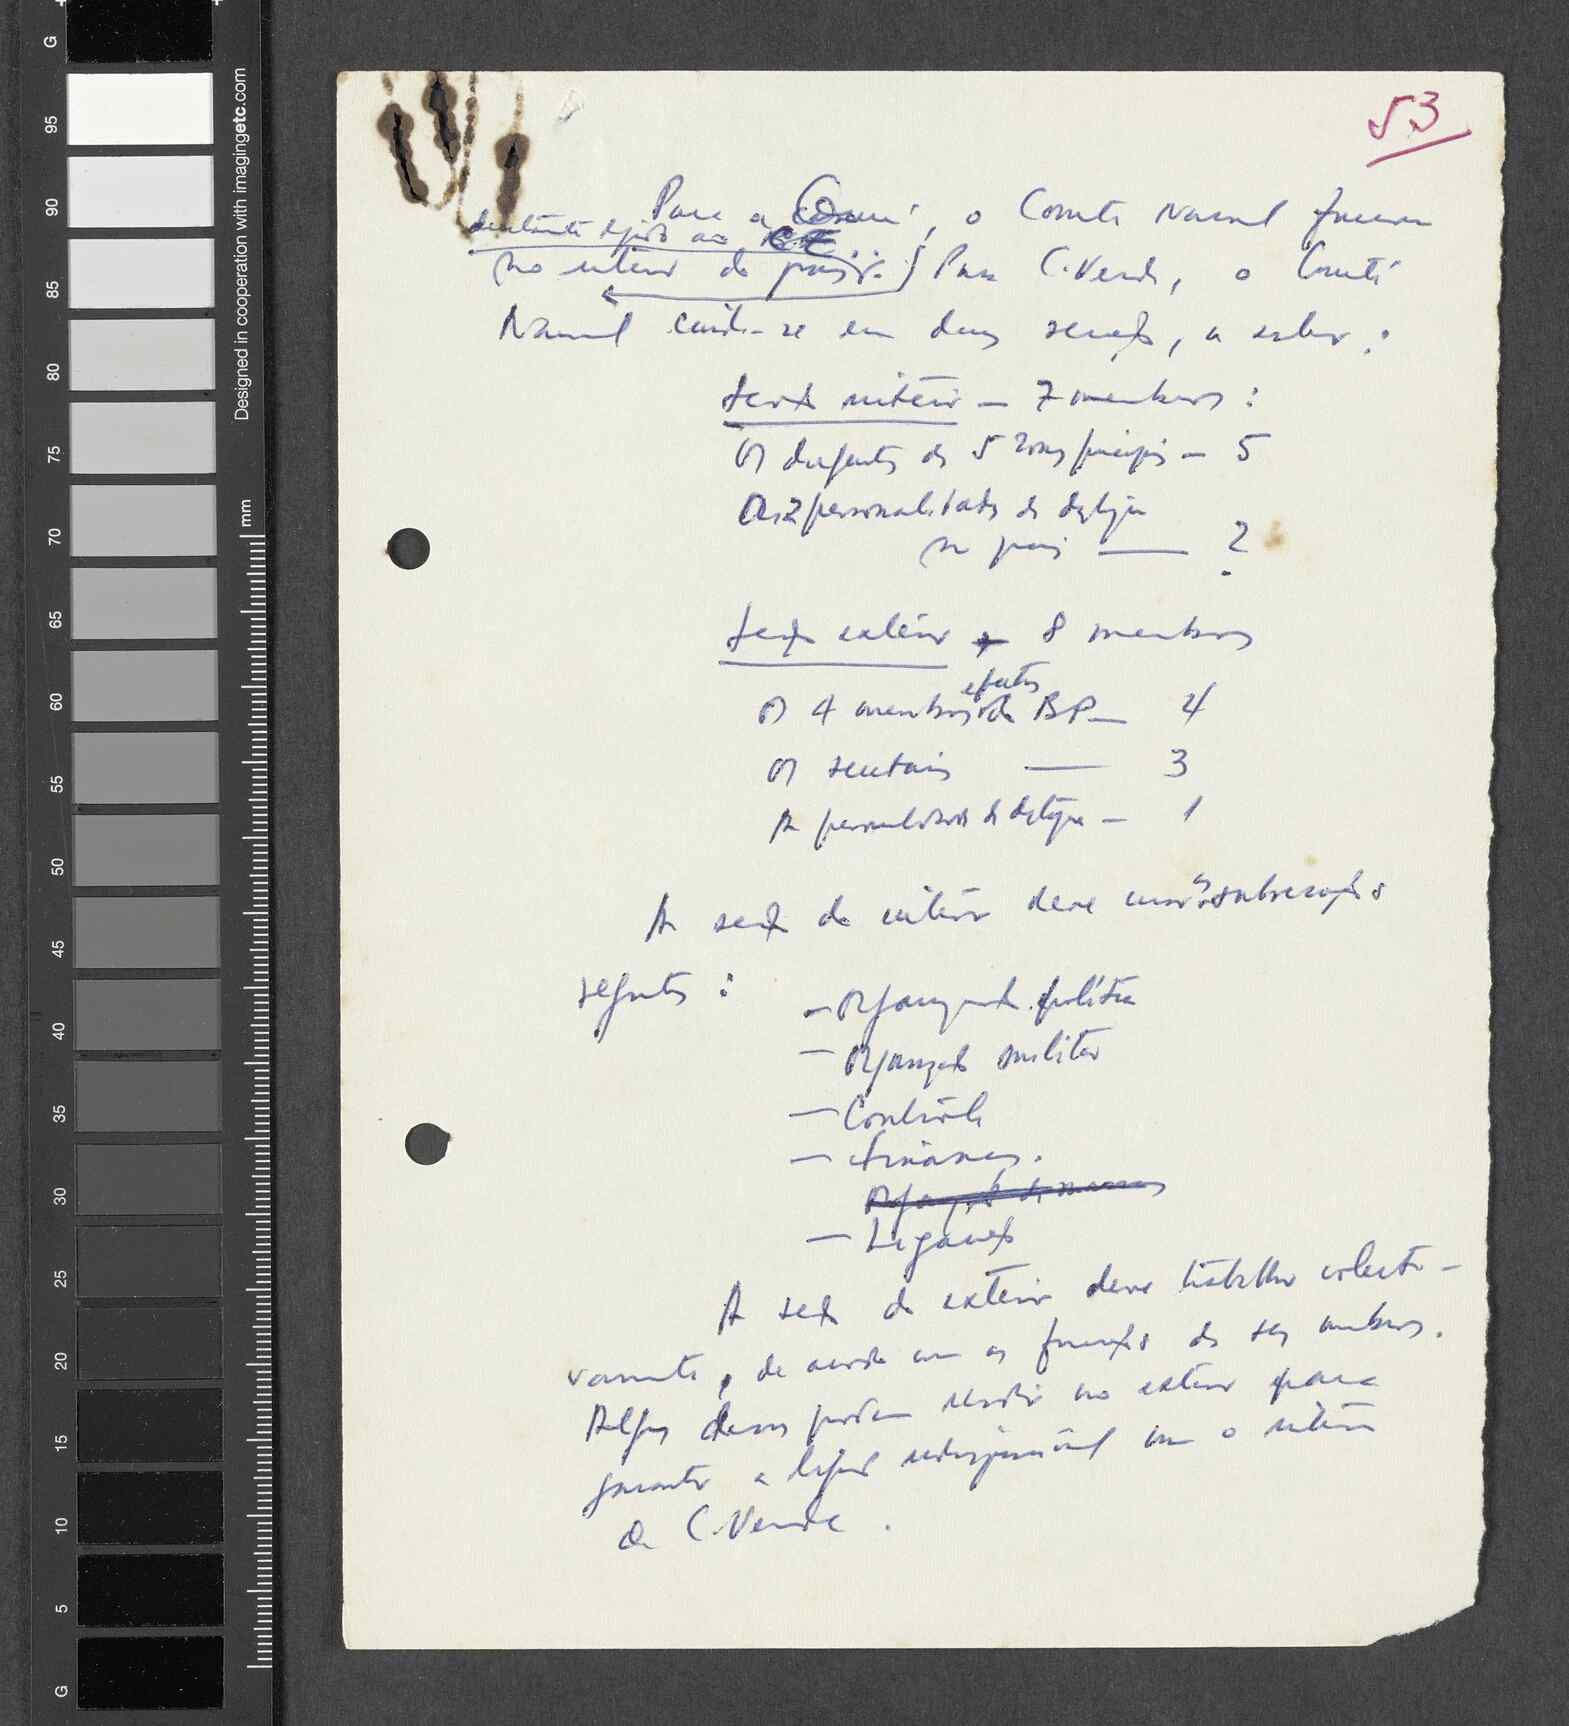 53
Para a Guiné, o Comité Nacional funciona
directamente ligado ao CE
no interior do país. Para C. Verde, o Comité
Nacional cinde-se em duas secções, a saber:
Secção interior — 7 membros:
Os dirigentes das 5 zonas principais — 5
As 2 personalidades de destaque
no país — 2
Secção exterior — 8 membros
efectivos
Os 4 membros do BP — 4
Os secretários — 3
A personalidade de destaque — 1
A secção do interior deve criar as subsecções
seguintes:
— Organização política
— Organização militar
— Contrôle
— Finanças.
Organização de massas
— Ligações
A secção do exterior deve trabalhar colecti-
vamente, de acordo com as funções dos seus membros.
Alguns devem poder residir no exterior para
garantir a ligação indispensável com o interior
de C. Verde.
G
95
90
85
80
75
70
65
60
55
50
45
40
35
30
25
20
15
10
5
G
mm
Designed in cooperation with imagingetc.com